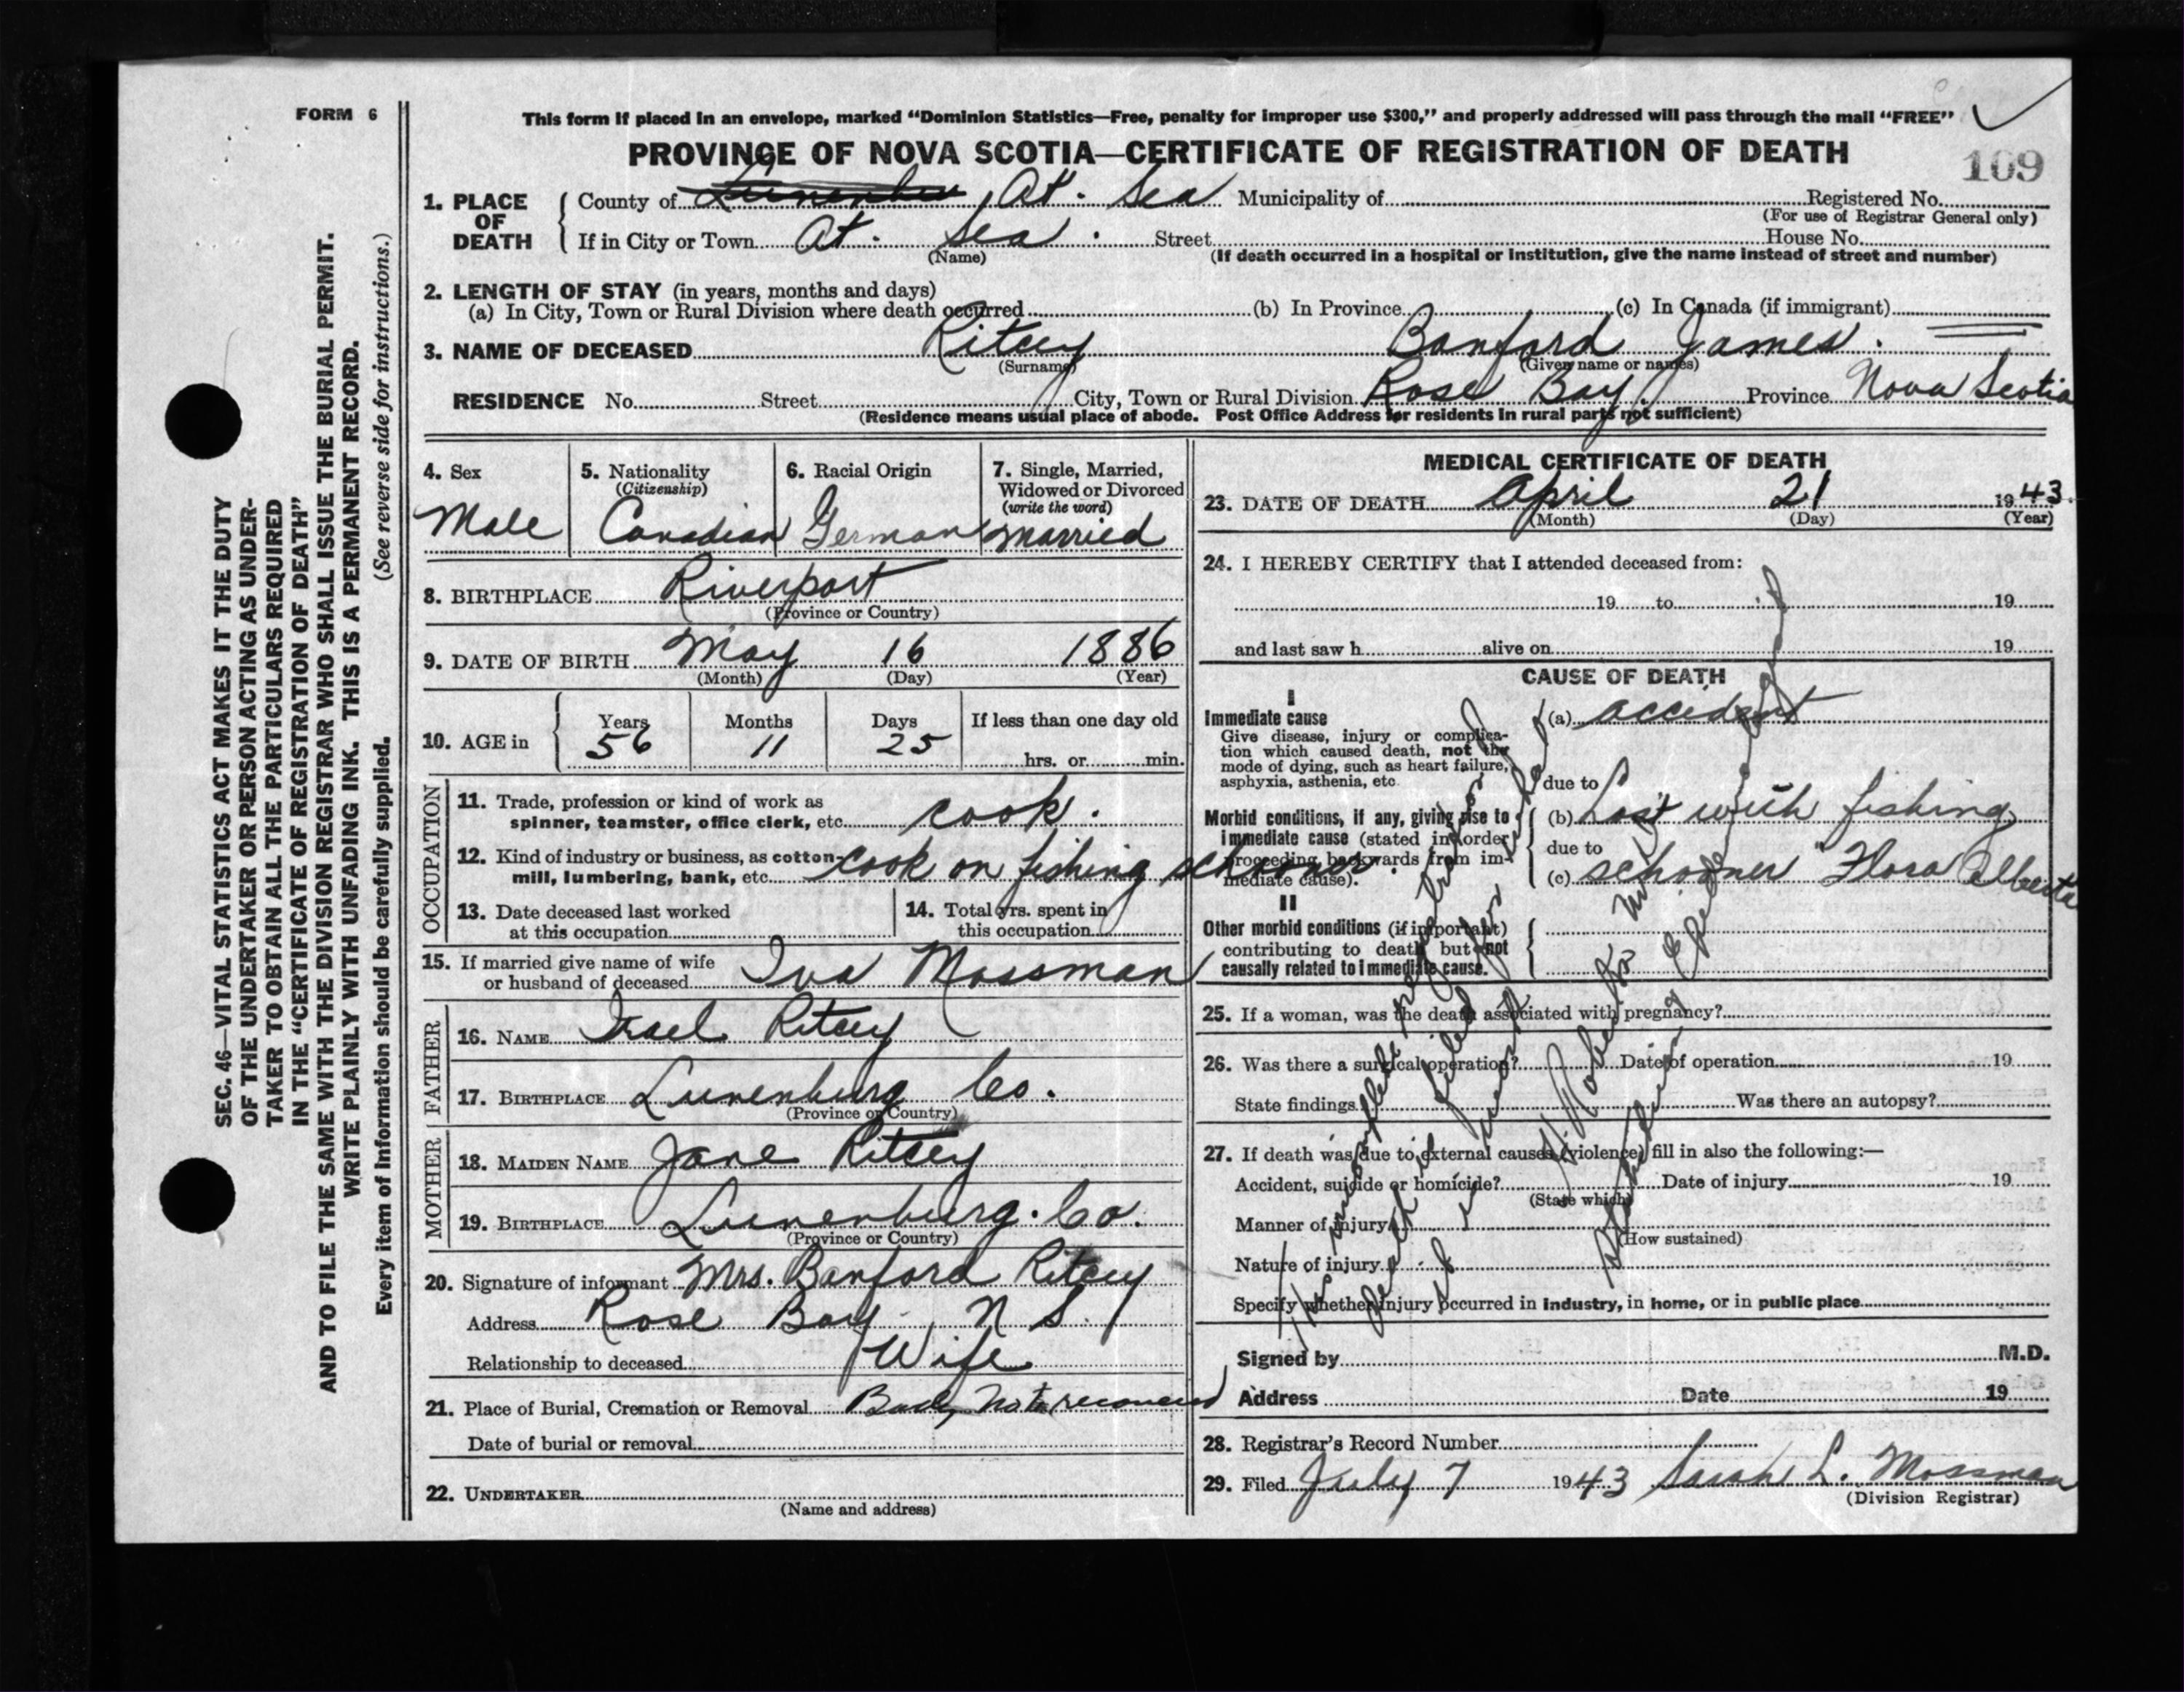 FORM 6
This form if placed in an envelope, marked “Dominion Statistics—Free, penalty for improper use $300,” and properly addressed will pass through the mail “FREE”
PROVINCE OF NOVA SCOTIA—CERTIFICATE OF REGISTRATION OF DEATH
109
1. PLACE OF DEATH
County of At. Sea Municipality of Registered No.
(For use of Registrar General only)
If in City or Town At. Sea. Street House No.
(Name) (If death occurred in a hospital or institution, give the name instead of street and number)
2. LENGTH OF STAY (in years, months and days)
(a) In City, Town or Rural Division where death occurred (b) In Province (c) In Canada (if immigrant)
3. NAME OF DECEASED Ritcey Banford James.
(Surname) (Given name or names)
RESIDENCE No. Street City, Town or Rural Division Rose Bay, Province Nova Scotia
(Residence means usual place of abode. Post Office Address for residents in rural parts not sufficient)
SEC. 46—VITAL STATISTICS ACT MAKES IT THE DUTY
OF THE UNDERTAKER OR PERSON ACTING AS UNDER-
TAKER TO OBTAIN ALL THE PARTICULARS REQUIRED
IN THE “CERTIFICATE OF REGISTRATION OF DEATH”
AND TO FILE THE SAME WITH THE DIVISION REGISTRAR WHO SHALL ISSUE THE BURIAL PERMIT.
WRITE PLAINLY WITH UNFADING INK. THIS IS A PERMANENT RECORD.
Every item of information should be carefully supplied. (See reverse side for instructions.)
4. Sex
Male
5. Nationality
(Citizenship)
Canadian
6. Racial Origin
German
7. Single, Married,
Widowed or Divorced
(write the word)
Married
8. BIRTHPLACE Riverport
(Province or Country)
9. DATE OF BIRTH May 16 1886
(Month) (Day) (Year)
10. AGE in
Years Months Days If less than one day old
56 11 25
hrs. or min.
OCCUPATION
11. Trade, profession or kind of work as
spinner, teamster, office clerk, etc. cook.
12. Kind of industry or business, as cotton-
mill, lumbering, bank, etc. Cook on fishing schooner.
13. Date deceased last worked
at this occupation
14. Total yrs. spent in
this occupation
15. If married give name of wife
or husband of deceased Iva Mossman
FATHER
16. NAME Israel Ritcey
17. BIRTHPLACE Lunenburg Co.
(Province or Country)
MOTHER
18. MAIDEN NAME Jane Ritcey
19. BIRTHPLACE Lunenburg. Co.
(Province or Country)
20. Signature of informant Mrs. Banford Ritcey
Address Rose Bay N S.
Relationship to deceased Wife
21. Place of Burial, Cremation or Removal Body Not recovered
Date of burial or removal
22. UNDERTAKER
(Name and address)
MEDICAL CERTIFICATE OF DEATH
23. DATE OF DEATH April 21 1943.
(Month) (Day) (Year)
24. I HEREBY CERTIFY that I attended deceased from:
19 to 19
and last saw h alive on 19
CAUSE OF DEATH
I
Immediate cause
Give disease, injury or complica-
tion which caused death, not the
mode of dying, such as heart failure,
asphyxia, asthenia, etc.
(a) accident
due to
Morbid conditions, if any, giving rise to
immediate cause (stated in order
proceeding backwards from im-
mediate cause).
(b) Lost with fishing
due to
(c) schooner "Flora Alberta
II
Other morbid conditions (if important)
contributing to death but not
causally related to immediate cause.
25. If a woman, was the death associated with pregnancy?
26. Was there a surgical operation? Date of operation 19
State findings Was there an autopsy?
27. If death was due to external causes (violence) fill in also the following:—
Accident, suicide or homicide? Date of injury 19
(State which)
Manner of injury
(How sustained)
Nature of injury
Specify whether injury occurred in industry, in home, or in public place
Signed by M.D.
Address Date 19
28. Registrar's Record Number
29. Filed July 7 1943 Sarah L. Mossman
(Division Registrar)